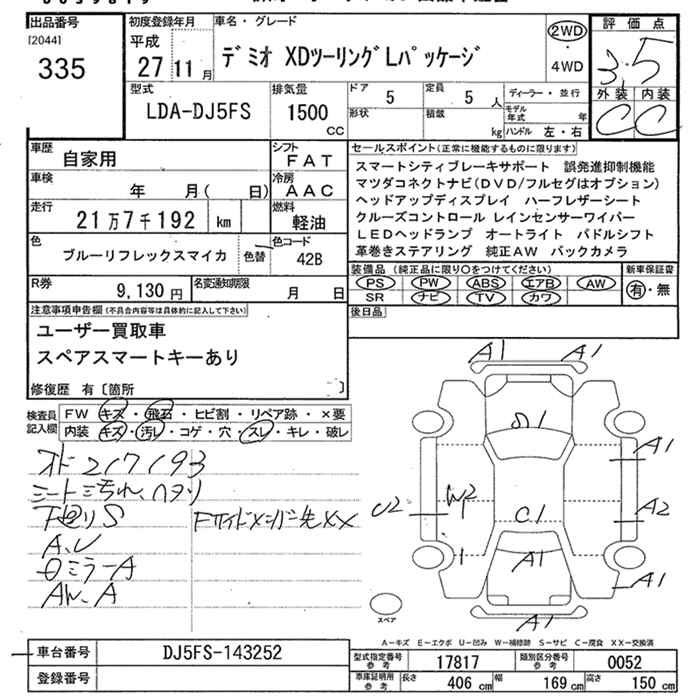 出品番号
[2044]
335
初度登録年月
平成
27 11 月
車名・グレード
デミオ XDツーリングLパッケージ
2WD
・
4WD
評価点
3.5
外装 内装
C C
型式
LDA-DJ5FS
排気量
1500
CC
ドア
5
定員
5 人
形状
積載
kg
ディーラー・並行
モデル年式 年
ハンドル 左・右
車歴
自家用
シフト
FAT
車検
年 月( 日)
冷房
AAC
走行
21万7千192 km
燃料
軽油
色
ブルーリフレックスマイカ
色替
色コード
42B
R券
9,130 円
名変通知期限
月 日
セールスポイント(正常に機能するものに限ります)
スマートシティブレーキサポート 誤発進抑制機能
マツダコネクトナビ(DVD/フルセグはオプション)
ヘッドアップディスプレイ ハーフレザーシート
クルーズコントロール レインセンサーワイパー
LEDヘッドランプ オートライト パドルシフト
革巻きステアリング 純正AW バックカメラ
装備品 (純正品に限り○をつけてください)
新車保証書
PS PW ABS エアB AW
SR ナビ TV カワ
有・無
後日品
注意事項申告欄(不具合内容等は具体的に記入して下さい)
ユーザー買取車
スペアスマートキーあり
修復歴 有〔箇所 〕
検査員記入欄
FW キズ・飛石・ヒビ割・リペア跡・×要
内装 キズ・汚レ・コゲ・穴・スレ・キレ・破レ
オド217193
シート汚れ、ヘタリ
下廻りS
Fサイドメンバー先XX
A、U
ロミラーA
AW、A
A1 A1
A1
U2
W2
C1
A1
A2
1
A1
A1
A1
スペア
A-キズ E-エクボ U-凹み W-補修跡 S-サビ C-腐食 XX-交換済
車台番号
DJ5FS-143252
登録番号
型式指定番号 参考
17817
類別区分番号 参考
0052
車庫証明用 参考
長さ 406 cm
幅 169 cm
高さ 150 cm